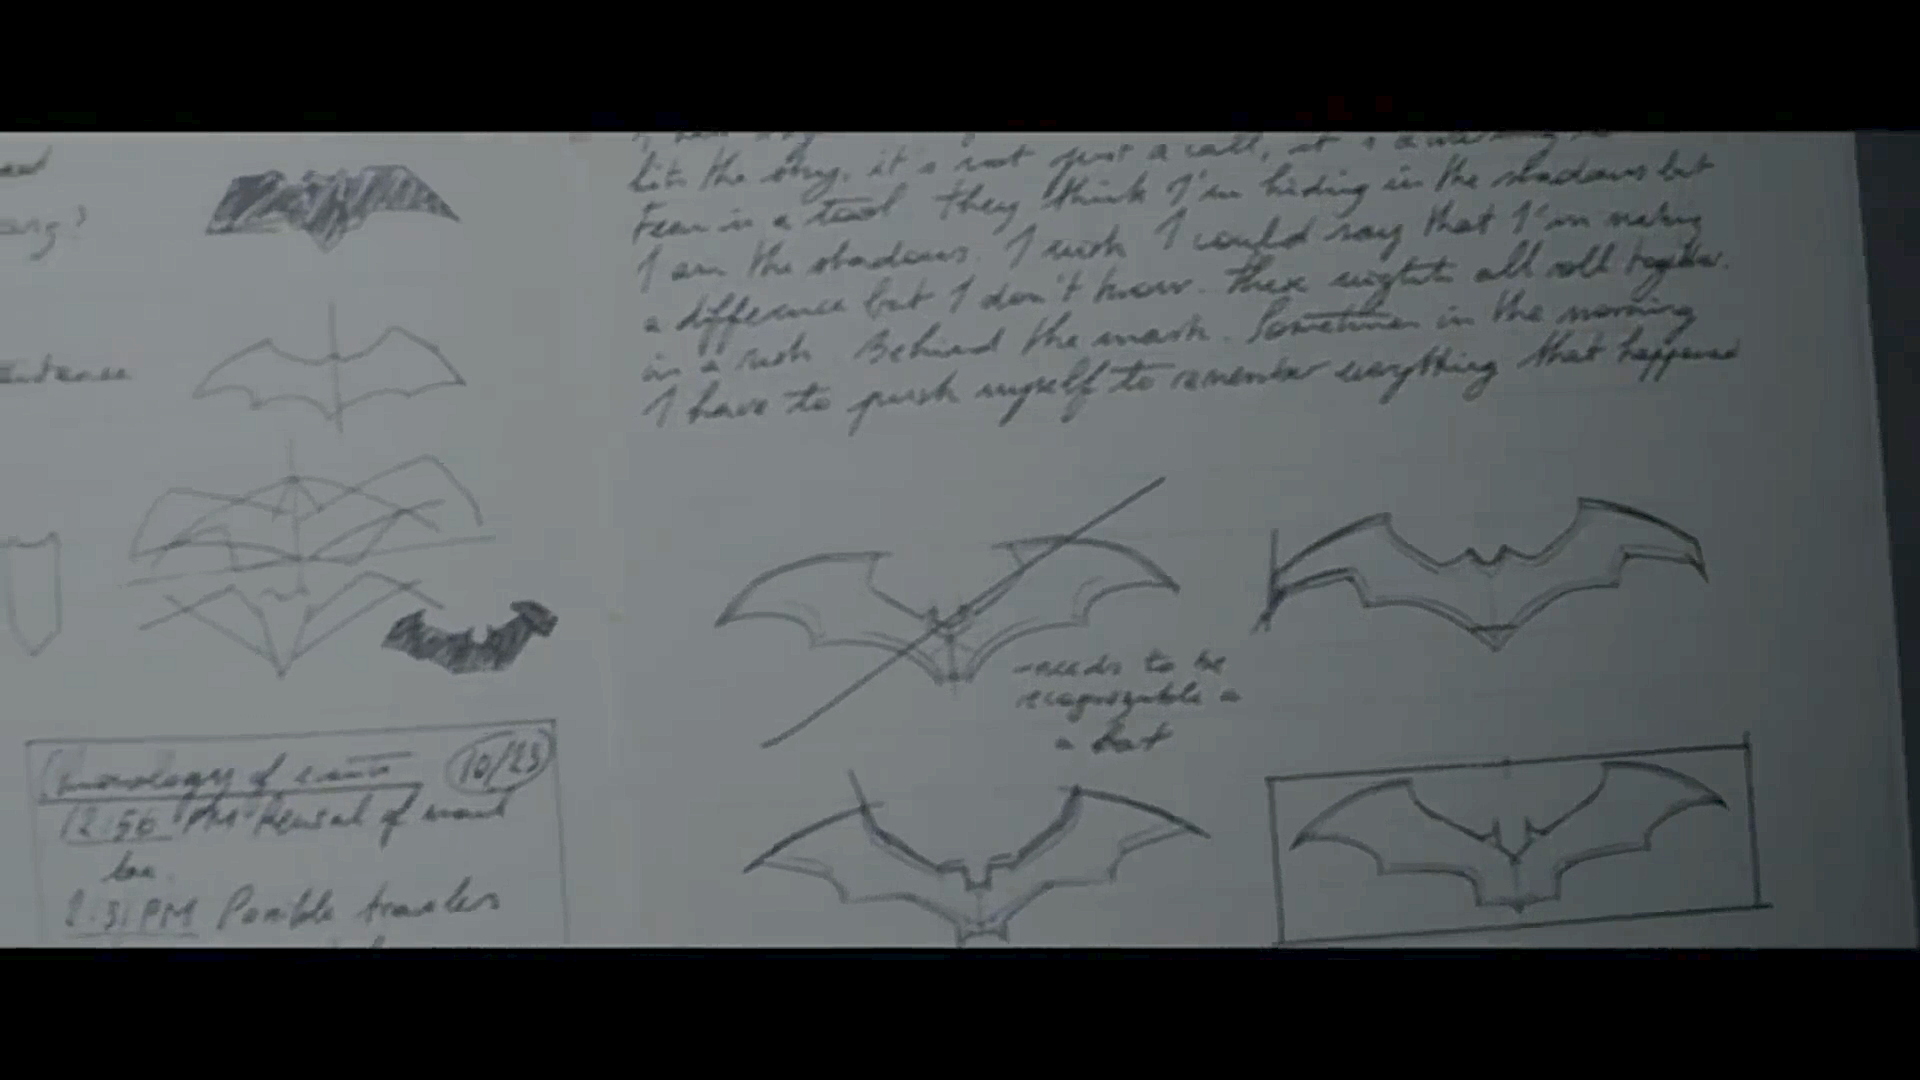 ang?
hits the sky, it's not just a call, it's a warning
Fear is a tool. They think I'm hiding in the shadows but
I am the shadows. I wish I could say that I'm making
a difference but I don't know. These nights all roll together
in a rush. Behind the mask. Sometimes in the morning
I have to push myself to remember everything that happened
- needs to be
recognizable a
a bat
Chronology of events 10/23
12:56 PM Removal of
2:31 PM Possible travelers